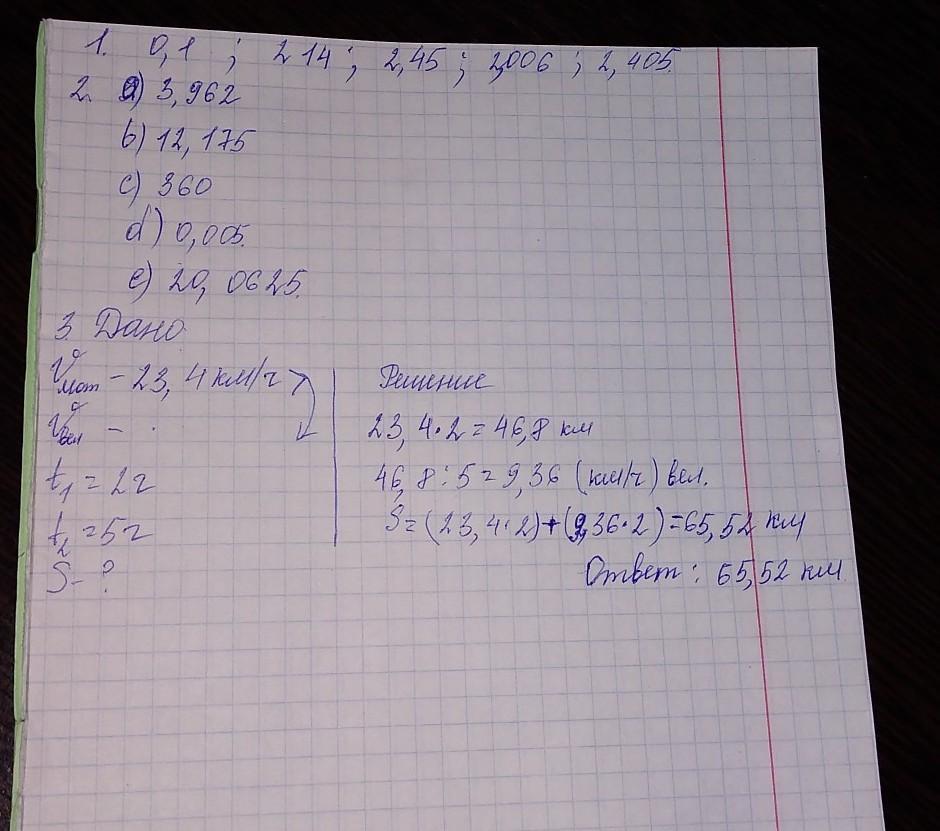 1. 0,1 ; 2 14 ; 2,45 ; 2,006 ; 2,405.
2. a) 3,962
b) 12,175
c) 360
d) 0,005.
e) 20,0625.
3. Дано
Vмот - 23,4 км/ч
Vвел - .
t1 = 2ч
t2 = 5ч
S - ?
Решение
23,4·2 = 46,8 км
46,8 : 5 = 9,36 (км/ч) вел.
S = (23,4·2)+(9,36·2) = 65,52 км
Ответ: 65,52 км